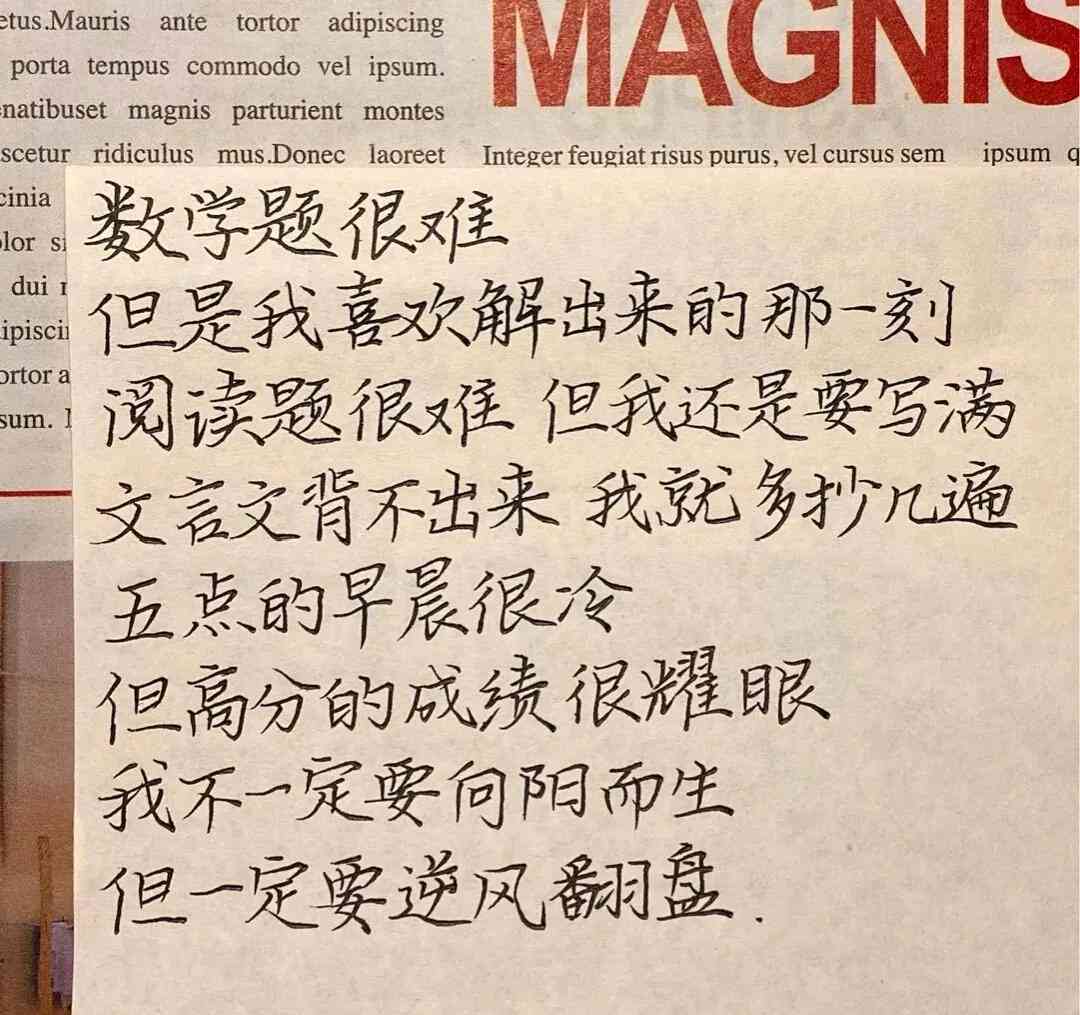 etus.Mauris ante tortor adipiscing
porta tempus commodo vel ipsum.
enatibuset magnis parturient montes
scetur ridiculus mus.Donec laoreet
MAGNIS
Integer feugiat risus purus, vel cursus sem ipsum q
cinia
olor si
dui
ipiscin
ortor a
sum.
数学题很难
但是我喜欢解出来的那一刻
阅读题很难 但我还是要写满
文言文背不出来 我就多抄几遍
五点的早晨很冷
但高分的成绩很耀眼
我不一定要向阳而生
但一定要逆风翻盘.